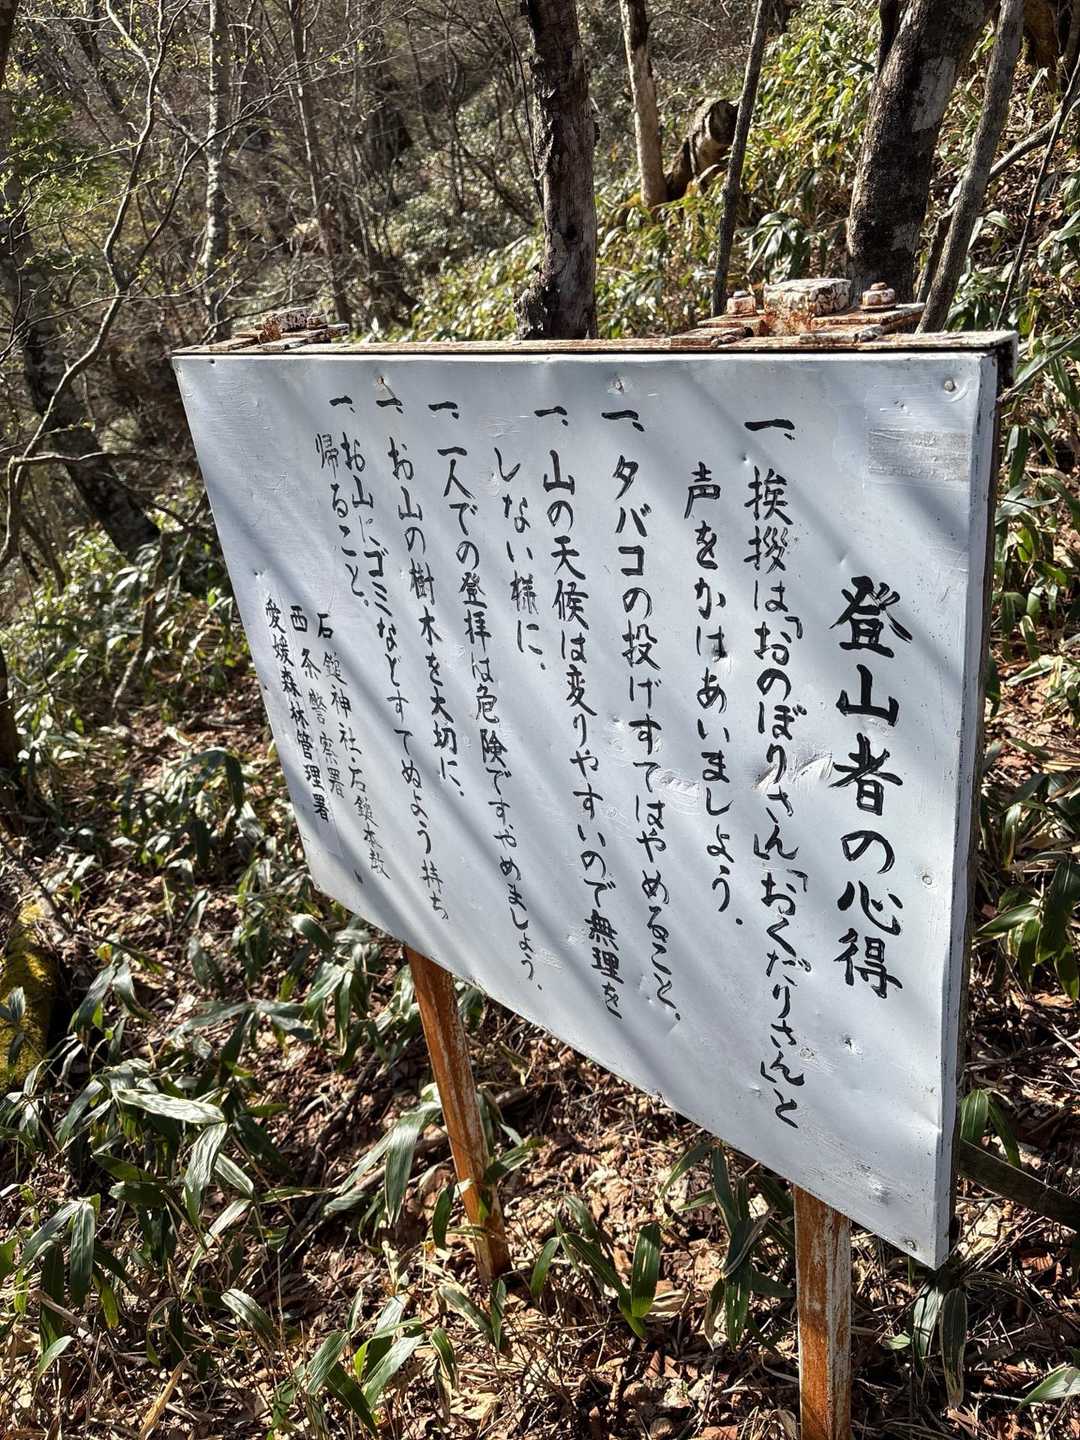 登山者の心得
一、挨拶は「おのぼりさん」「おくだりさん」と
声をかけあいましょう.
一、タバコの投げすてはやめること.
一、山の天候は変りやすいので無理を
しない様に.
一、一人での登拝は危険ですやめましょう.
一、お山の樹木を大切に.
一、お山にゴミなどすてぬよう持ち
帰ること.
石鎚神社・石鎚本教
西条警察署
愛媛森林管理署